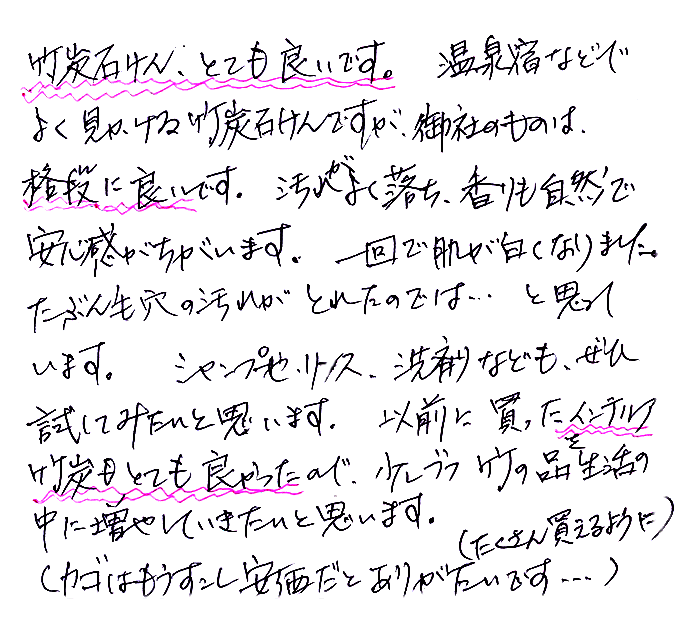 竹炭石けん、とても良いです。 温泉宿などで
よく見かける竹炭石けんですが、御社のものは、
格段に良いです。 汚れがよく落ち、香りも自然で
安心感がちがいます。 一回で肌が白くなりました。
たぶん毛穴の汚れがとれたのでは… と思って
います。 シャンプーやリンス、洗剤なども、ぜひ
試してみたいと思います。 以前に買ったインテリア
竹炭もとても良かったので、少しづつ竹の品を生活の
中に増やしていきたいと思います。
(たくさん買えるように)
(カゴはもうすこし安価だとありがたいです…)